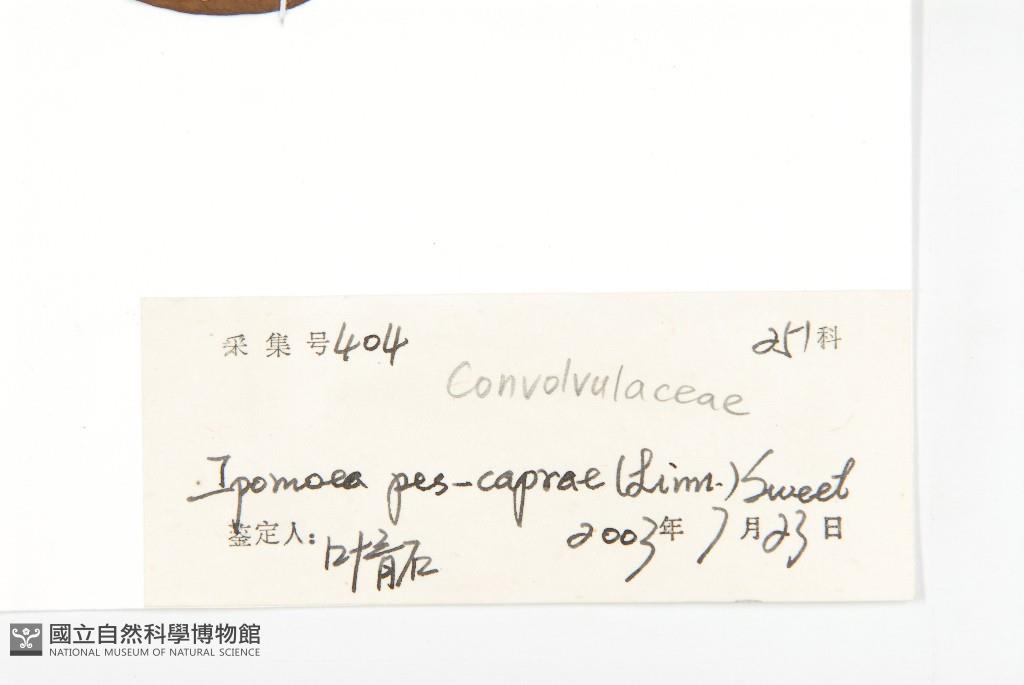 采集号404 251科
Convolvulaceae
Ipomoea pes-caprae (Linn.) Sweet
鉴定人: 叶育石 2003年7月23日
國立自然科學博物館
NATIONAL MUSEUM OF NATURAL SCIENCE